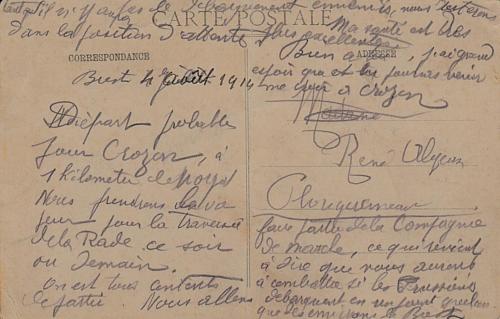 tant qu'il n'y aura de débarquement ennemis, nous resterons
dans la position d'attente
CARTE POSTALE
Ma santé est des
plus excellentes.
CORRESPONDANCE
ADRESSE
Bien j'ai grand
espoir que et les pourras venir
me voir à Crozon
Brest 4 Août 1914
Départ probable
pour Crozon, à
1 kilomètre de
Nous prendrons la va
peur pour la traversée
de la Rade ce soir
ou Demain.
On est tous contents
de partir. Nous allons
Madame
René
Plouguerneau
faire partie de la Compagnie
de marche, ce qui revient
à dire que nous aurons
à combattre si les Prussiens
débarquent en un point quelcon
que des environs de Brest